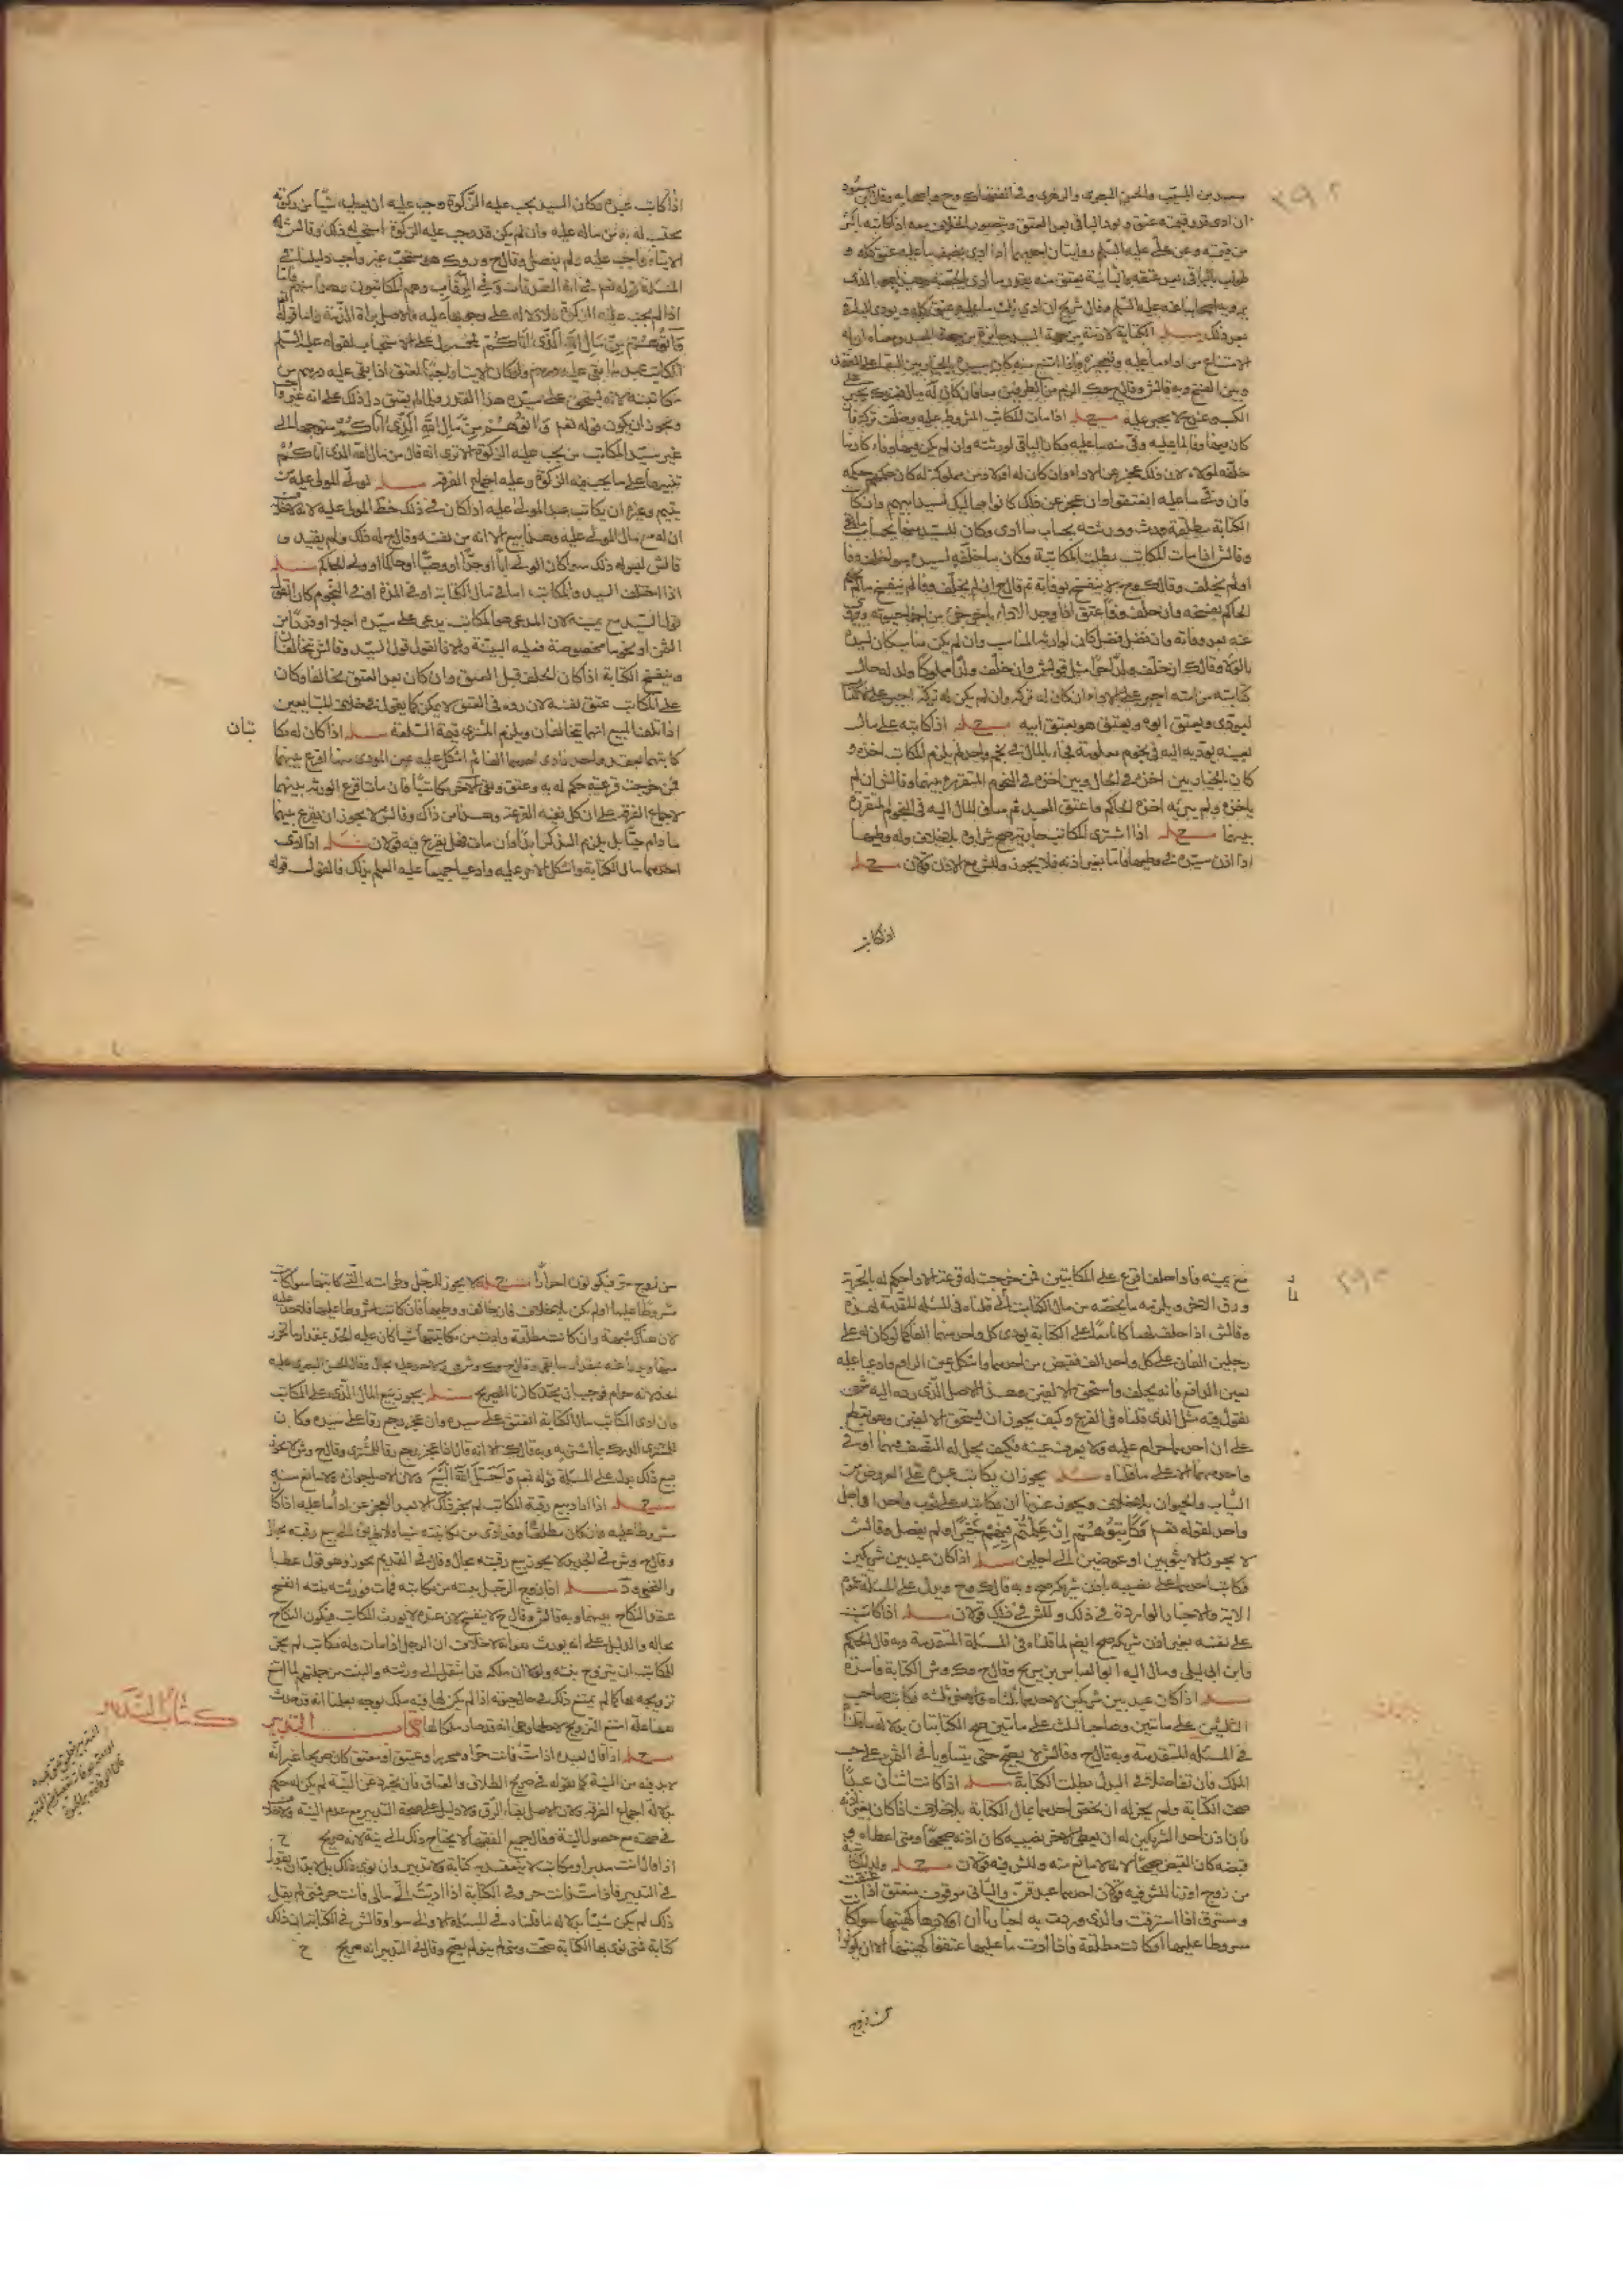 سعيد بن المسيب والحسن البصري والزهري وفي الفقهاء ك وح واصحابه وقال ابن مسعود
ان ادى قدر قيمته عتق ويؤد الباقي بعد العتق ويتصور الخلاف معه اذا كاتبه باكثر
من قيمته وعن علي عليه السلم روايتان احديهما اذا ادى نصف ما عليه عتق كله و
طولب بالباقي بعد عتقه والثانية يعتق منه بقدر ما ادى
اصحابنا عنه عليه السلم وقال شريح ان ادى ثلث ما عليه عتق كله ويؤدى الباقي
بعد ذلك مسئلة الكتابة لازمة من جهة السيد جايزة من جهة العبد ومعناه ان له
الامتناع من اداء ما عليه وتعجيزه فاذا امتنع منه كان سيده بالخيار بين البقاء على العقد
وبين الفسخ وبه قال ش وقال ح وك الزم من الطرفين معا فان كان له مال
الكسب عندح لا يجبر عليه مسئلة اذا مات المكاتب المشروط عليه وخلف تركة فان
كان فيها وفا لما عليه وفى منه ما عليه وكان الباقي لورثته وان لم يكن فيها وفاء كان ما
خلفه لمولاه لان ذلك عجز عن الاداء وان كان له اولاد من مملوكة له كان حكمهم حكمه
فان وفى ما عليه انعتقوا وان عجز عن ذلك كانوا مماليك لسيد ابيهم وان كانت
الكتابة مطلقة ورث وورثته بحساب ما ادى وكان للسيد منها بحساب ما بقي
وقال ش اذا مات المكاتب بطلت المكاتبة وكان ما خلفه لسيده سواء خلف وفا
اولم يخلف وقال ك وح لا ينفسخ بوفاته ثم قال ح ان لم يخلف وفا لم ينفسخ مالم
الحاكم بفسخه وان خلف وفا عتق اذا وجد الاداء باخر جزء من اجزاء حيوته ويؤدى
عنه بعد وفاته وان فضل فضل كان لوارثه المناسب وان لم يكن مناسب كان لسيده
بالولاء وقال ك ان خلف ولدا حرا مثل قول ش وان خلف ولدا مملوكا ولد له حال
كتابته من امته اجبر على الاداء ان كان له تركة وان لم يكن له تركة اجبر على الاكتساب
ليؤدى ويعتق ابوه ويعتق هو بعتق ابيه مسئلة اذا كاتبه على مال
بعينه يؤديه اليه في نجوم معلومة فجاء بالمال في نجم واحد لم يلزم المكاتب اخذه و
كان بالخيار بين اخذه في الحال وبين اخذه في النجوم المتقررة بينهما وقال ش ان لم
ياخذه ولم يبريه اخذه الحاكم واعتق العبد ثم ساق المال اليه في النجوم المتقررة
بينهما مسئلة اذا اشترى المكاتب جارية صح شراؤه بلا خلاف وله وطيها
اذا اذن سيده في وطيها فاما بغير اذنه فلا يجوز ول ش مع الاذن قولان مسئلة
اذا كاتب
اذا كاتب عبده وكان السيد يجب عليه الزكوة وجب عليه ان يعطيه شيئا من زكوته
يحتسب له به من ماله عليه وان لم يكن قد وجب عليه الزكوة استحب له ذلك وقال ش
الايتاء واجب عليه ولم يفصل وقال ح و وك هو مستحب غير واجب دليلنا في
المسئلة قوله تعم في اية الصدقات وفي الرقاب وهم المكاتبون وهذا منهم فاما
اذا لم يجب عليه الزكوة فلا دلالة على وجوبها عليه والاصل براءة الذمة واما قوله
وَآتُوهُمْ مِنْ مَالِ اللَّهِ الَّذِي آتَاكُمْ محمول على الاستحباب لقوله عليه السلم
المكاتب عبد ما بقي عليه درهم ولو كان الايتاء واجبا لعتق اذا بقي عليه درهم من
مكاتبته لانه يستحق على سيده هذا القدر ولما لم يعتق دل ذلك على انه غير واجب
ويجوز ان يكون قوله تعم وَآتُوهُمْ مِنْ مَالِ اللَّهِ الَّذِي آتَاكُمْ متوجها الى
غير سيد المكاتب من يجب عليه الزكوة الا ترى انه قال من مال الله الذي اتاكم
تنبيها على ما يجب فيه الزكوة وعليه اجماع الفرقة مسئلة لولي المولى عليه من
يتيم وغيره ان يكاتب عبد المولى عليه اذا كان في ذلك حظ المولى عليه لانه لا خلاف
ان له بيع مال المولى عليه وهذا بيع الا انه من نفسه وقال ح له ذلك ولم يقيد و
قال ش ليس له ذلك سواء كان الولي ابا او جدا او وصيا او حاكما او ولي الحاكم مسئلة
اذا اختلف السيد والمكاتب اما في مال الكتابة او في المدة او في النجوم كان القول
قول السيد مع يمينه لان المدعى هو المكاتب يدعى على سيده اجلا او قدرا من
الثمن او نجوما مخصوصة فعليه البينة والا فالقول قول السيد وقال ش تحالفا
وينفسخ الكتابة اذا كان الحلف قبل العتق وان كان بعد العتق تحالفا وكان
على المكاتب عتق نفسه لان رده في العتق لا يمكن كما يقول في خلاف المتبايعين
اذا تلف المبيع انهما يتحالفان ويلزم المشترى قيمة السلعة مسئلة اذا كان له مكا
تبان
كاتبهما بعقد واحد فادى احدهما الفا ثم اشكل عليه عين المؤدى منهما اقرع بينهما
فمن خرجت قرعته حكم له به وعتق وبقي الاخر مكاتبا فان مات اقرع الورثة بينهما
لاجماع الفرقة على ان كل ففيه القرعة وهذا من ذاك وقال ش لا يجوز ان يقرع بينهما
ما دام حيا بل يلزم التذكر ابدا فان مات فهل يقرع فيه قولان مسئلة اذا ادى
احدهما مال الكتابة واشكل الامر عليه وادعيا جميعا عليه العلم بذلك فالقول قوله
مع يمينه فاذا حلف اقرع على المكاتبين فمن خرجت له قرعة الاداء حكم له بالحرية
ورق الاخر ويلزمه ما يخصه من مال الكتابة لما قلناه في المسئلة المتقدمة لهذه
وقال ش اذا حلف لهما كانا معا على الكتابة يؤدى كل واحد منهما الفا كما لو كان له على
رجلين الفان على كل واحد الف فقبض من احدهما واشكل عين الدافع وادعيا عليه
تعيين الدافع فانه يحلف ويستحق الالفين وهذا الاصل الذي رده اليه نحن
نقول فيه مثل الذي قلناه في الفرع وكيف يجوز ان يستحق الالفين وهو يقطع
على ان احدهما حرام عليه ولا يعرف عينه فكيف يحل له التصرف فيهما او في
واحد منهما الا على ما قلناه مسئلة يجوز ان يكاتب عبده على العروض من
الثياب والحيوان بلا خلاف ويجوز عندنا ان يكاتبه على ثوب واحد الى اجل
واحد لقوله تعم فَكَاتِبُوهُمْ إِنْ عَلِمْتُمْ فِيهِمْ خَيْرًا ولم يفصل وقال ش
لا يجوز الا بثوبين او عوضين الى اجلين مسئلة اذا كان عبد بين شريكين
فكاتب احدهما على نصيبه باذن شريكه صح وبه قال ك وح ويدل على المسئلة عموم
الاية والاخبار الواردة في ذلك ولل ش في ذلك قولان مسئلة اذا كاتبه
على نفسه بغير اذن شريكه صح ايضا لما قلناه في المسئلة المتقدمة وبه قال الحكم
وابن ابي ليلى ومال اليه ابو العباس بن سريج وقال ح وك وش الكتابة فاسدة
مسئلة اذا كان عبد بين شريكين لاحدهما ثلثاه وللاخر ثلثه فكاتب صاحب
الثلثين على مائتين وصاحب الثلث على مائتين صح الكتابتان بدلالة ما قلنا
في المسئلة المتقدمة وبه قال ح وقال ش لا يصح حتى يتساويا في الثمن على حسب
الملك فان تفاضلا في البدل بطلت الكتابة مسئلة اذا كاتب اثنان عبدا
صحت الكتابة ولم يجز له ان يخص احدهما بمال الكتابة بلا خلاف اذا كان بغير اذنه
فان اذن احد الشريكين له ان يعطى الاخر نصيبه كان اذنه صحيحا ومتى اعطاه و
قبضه كان القبض صحيحا لانه لا مانع منه ولل ش فيه قولان مسئلة ولد المكاتبة
من زوج او زنا لل ش فيه قولان احدهما عبد قن والثاني موقوف يعتق اذا عتقت
ويسترق اذا استرقت والذي وردت به اخبارنا ان اولادها كهيئتها سواء كان
مشروطا عليها او كانت مطلقة فاذا ادت ما عليها عتقوا كهيئتها الا ان يكونوا
من زوج
من زوج حر فيكونون احرارا مسئلة لا يجوز للرجل وطى امته التي كاتبها سواء كانت
مشروطا عليها او لم يكن بلا خلاف فان خالف ووطيها فان كانت مشروطا عليها فلا حد عليه
لان هناك شبهة وان كانت مطلقة وادت من مكاتبتها شيئا كان عليه الحد بمقدار ما تحرر
منها ويدرأ عنه بمقدار ما بقي وقال ح وك وش لا حد عليه بحال وقال الحسن البصري عليه
الحد لانه حرام فوجب ان يحد كالزنا الصريح مسئلة يجوز بيع المال الذي على المكاتب
فان ادى المكاتب مال الكتابة انعتق على سيده وان عجز رجع رقا على سيده وكان
للمشترى الدرك بما اشترى به وبه قال ك الا انه قال اذا عجز رجع رقا للمشترى وقال ح وش لا يجوز
بيع ذلك يدل على المسئلة قوله تعم وَأَحَلَّ اللَّهُ الْبَيْعَ ولان الاصل جوازه ولا مانع منه
مسئلة اذا اراد بيع رقبة المكاتب لم يجز ذلك الا بعد العجز عن اداء ما عليه اذا كان
مشروطا عليه وان كان مطلقا وقد ادى من مكاتبته شيئا فلا طريق الى بيع رقبته بحال
وقال ح وش في الجديد لا يجوز بيع رقبته بحال وقال في القديم يجوز وهو قول عطا
والنخعي ود مسئلة اذا زوج الرجل بنته من مكاتبه فمات وورثته بنته انفسخ
عقد النكاح بينهما وبه قال ش وقال ح لا ينفسخ لان عنده لا يورث المكاتب فيكون النكاح
بحاله والدليل على انه يورث هو انه لا خلاف ان الرجل اذا مات وله مكاتب لم يجز
للمكاتب ان يتزوج بنته ولولا ان ملكه قد انتقل الى ورثته والبنت من جملتهم لما امتنع
تزويجه بها كما لم يمتنع ذلك في حال حيوته اذا لم يكن لها فيه ملك بوجه
كتاب التدبير
مسئلة اذا قال لعبده اذا مت فانت حر او محرر او عتيق او معتق كان صريحا غير انه
لا بد فيه من النية كما نقوله في صريح الطلاق والعتاق فان تجرد عن النية لم يكن له حكم
بدلالة اجماع الفرقة ولان الاصل بقاء الرق ولا دليل على صحة التدبير مع عدم النية ولا خلاف
في صحته مع حصول النية وقال جميع الفقهاء لا يحتاج ذلك الى نية لانه صريح ح
اذا قال انت مدبر او مكاتب لا ينعقد به كتابة ولا تدبير وان نوى ذلك بل لا بد ان يقول
في التدبير فاذا مت فانت حر وفي الكتابة اذا اديت الى مالي فانت حر فمتى لم يقل
ذلك لم يكن شيئا بدلالة ما قلناه في المسئلة الاولى سواء وقال ش في الكتابة ان ذلك
كتابة فمتى نوى بها الكتابة صحت ومتى لم ينو لم يصح وقال في التدبير انه صريح ح
كتاب التدبير